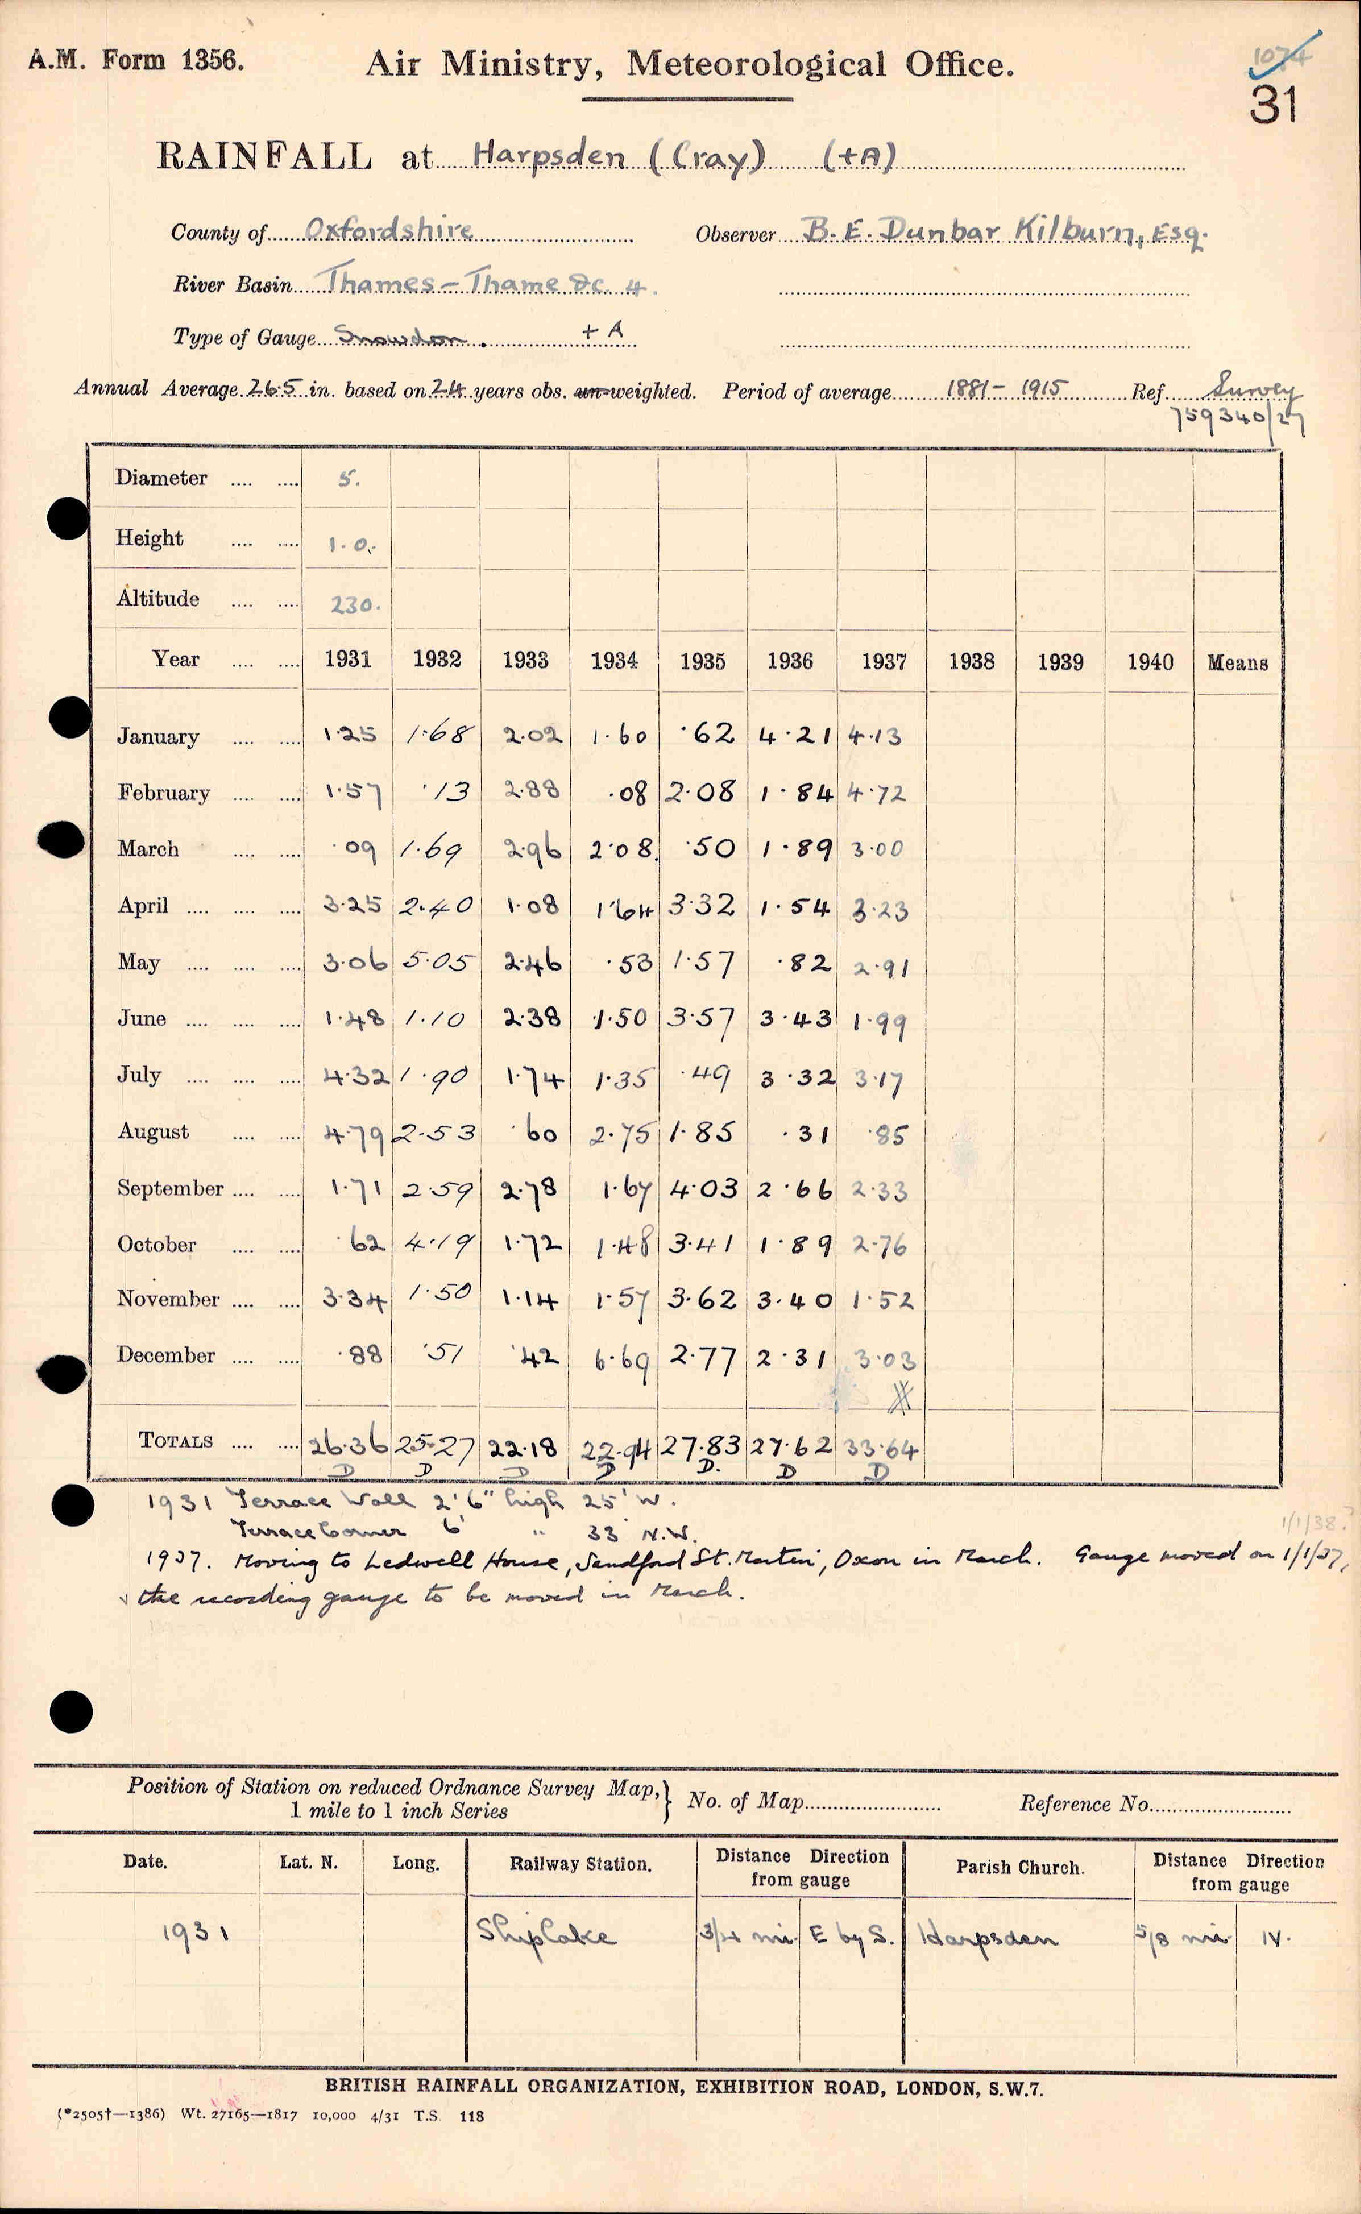 1074
A.M. Form 1356. Air Ministry, Meteorological Office. 31
RAINFALL at Harpsden (Cray) (+A)
County of Oxfordshire Observer B. E. Dunbar Kilburn, Esq.
River Basin Thames – Thame &c. 4.
Type of Gauge Snowdon. + A
Annual Average 26.5 in. based on 24 years obs. un-weighted. Period of average 1881 – 1915 Ref. Survey
759340/27
Diameter .... .... 5.
Height .... .... 1.0.
Altitude .... .... 230.
Year .... .... 1931 1932 1933 1934 1935 1936 1937 1938 1939 1940 Means
January .... .... 1.25 1.68 2.02 1.60 .62 4.21 4.13
February .... .... 1.57 .13 2.88 .08 2.08 1.84 4.72
March .... .... .09 1.69 2.96 2.08 .50 1.89 3.00
April .... .... .... 3.25 2.40 1.08 1.64 3.32 1.54 3.23
May .... .... .... 3.06 5.05 2.46 .53 1.57 .82 2.91
June .... .... .... 1.48 1.10 2.38 1.50 3.57 3.43 1.99
July .... .... .... 4.32 1.90 1.74 1.35 .49 3.32 3.17
August .... .... 4.79 2.53 .60 2.75 1.85 .31 .85
September .... .... 1.71 2.59 2.78 1.67 4.03 2.66 2.33
October .... .... .62 4.19 1.72 1.48 3.41 1.89 2.76
November .... .... 3.34 1.50 1.14 1.57 3.62 3.40 1.52
December .... .... .88 .51 .42 6.69 2.77 2.31 3.03
TOTALS .... .... 26.36 25.27 22.18 22.94 27.83 27.62 33.64
D D D D D. D D
1931 Terrace Wall 2' 6" high 25' W.
Terrace Corner 6' " 33 N.W.
1/1/38?
1937. Moving to Ledwell House, Sandford St. Martin, Oxon in March. Gauge moved on 1/1/37,
the recording gauge to be moved in March.
Position of Station on reduced Ordnance Survey Map, } No. of Map Reference No.
1 mile to 1 inch Series
Date. Lat. N. Long. Railway Station. Distance Direction from gauge Parish Church. Distance Direction from gauge
1931 Shiplake 3/4 mi. E by S. Harpsden 5/8 mi N.
BRITISH RAINFALL ORGANIZATION, EXHIBITION ROAD, LONDON, S.W.7.
(*2505†—1386) Wt. 27165—1817 10,000 4/31 T.S. 118